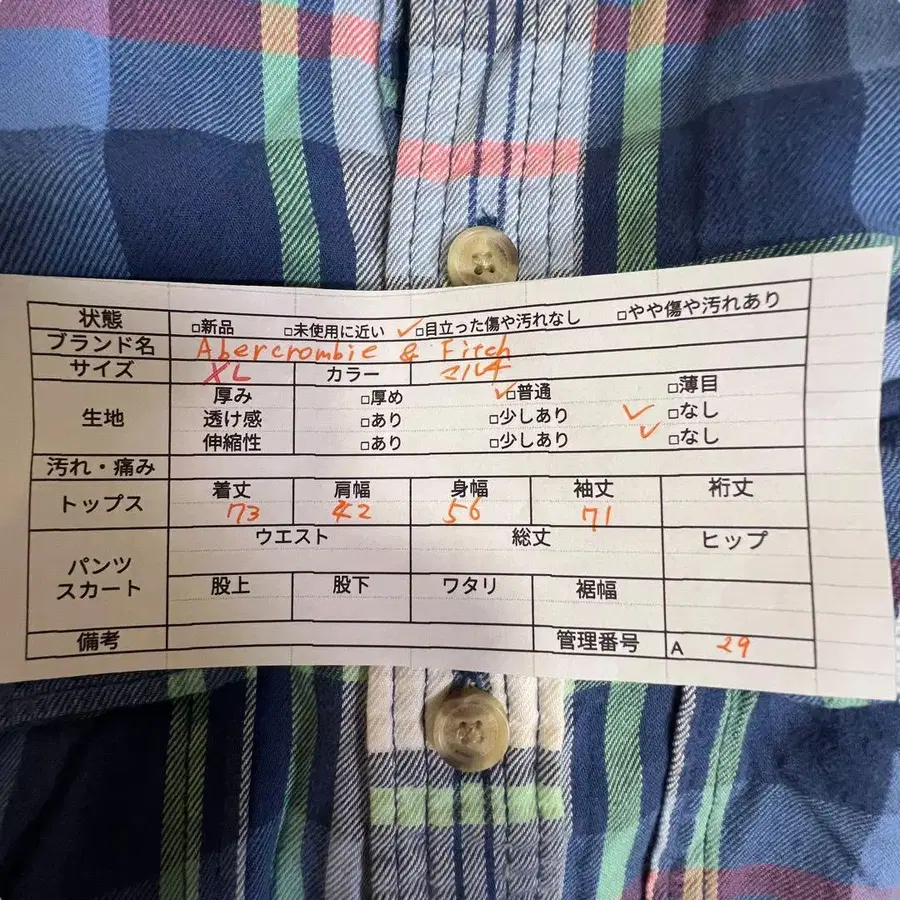 状態 □新品 □未使用に近い ✓□目立った傷や汚れなし □やや傷や汚れあり
ブランド名 Abercrombie & Fitch
サイズ XL カラー マルチ
生地 厚み □厚め ✓□普通 □薄目
透け感 □あり □少しあり ✓□なし
伸縮性 □あり □少しあり ✓□なし
汚れ・痛み
トップス 着丈 肩幅 身幅 袖丈 裄丈
73 42 56 71
パンツ スカート ウエスト 総丈 ヒップ
股上 股下 ワタリ 裾幅
備考 管理番号 A 29